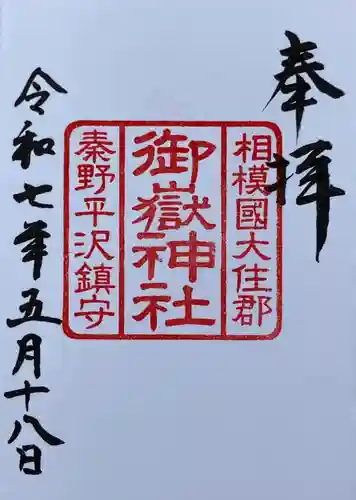 奉拝
相模國大住郡
御嶽神社
秦野平沢鎮守
令和七年五月十八日